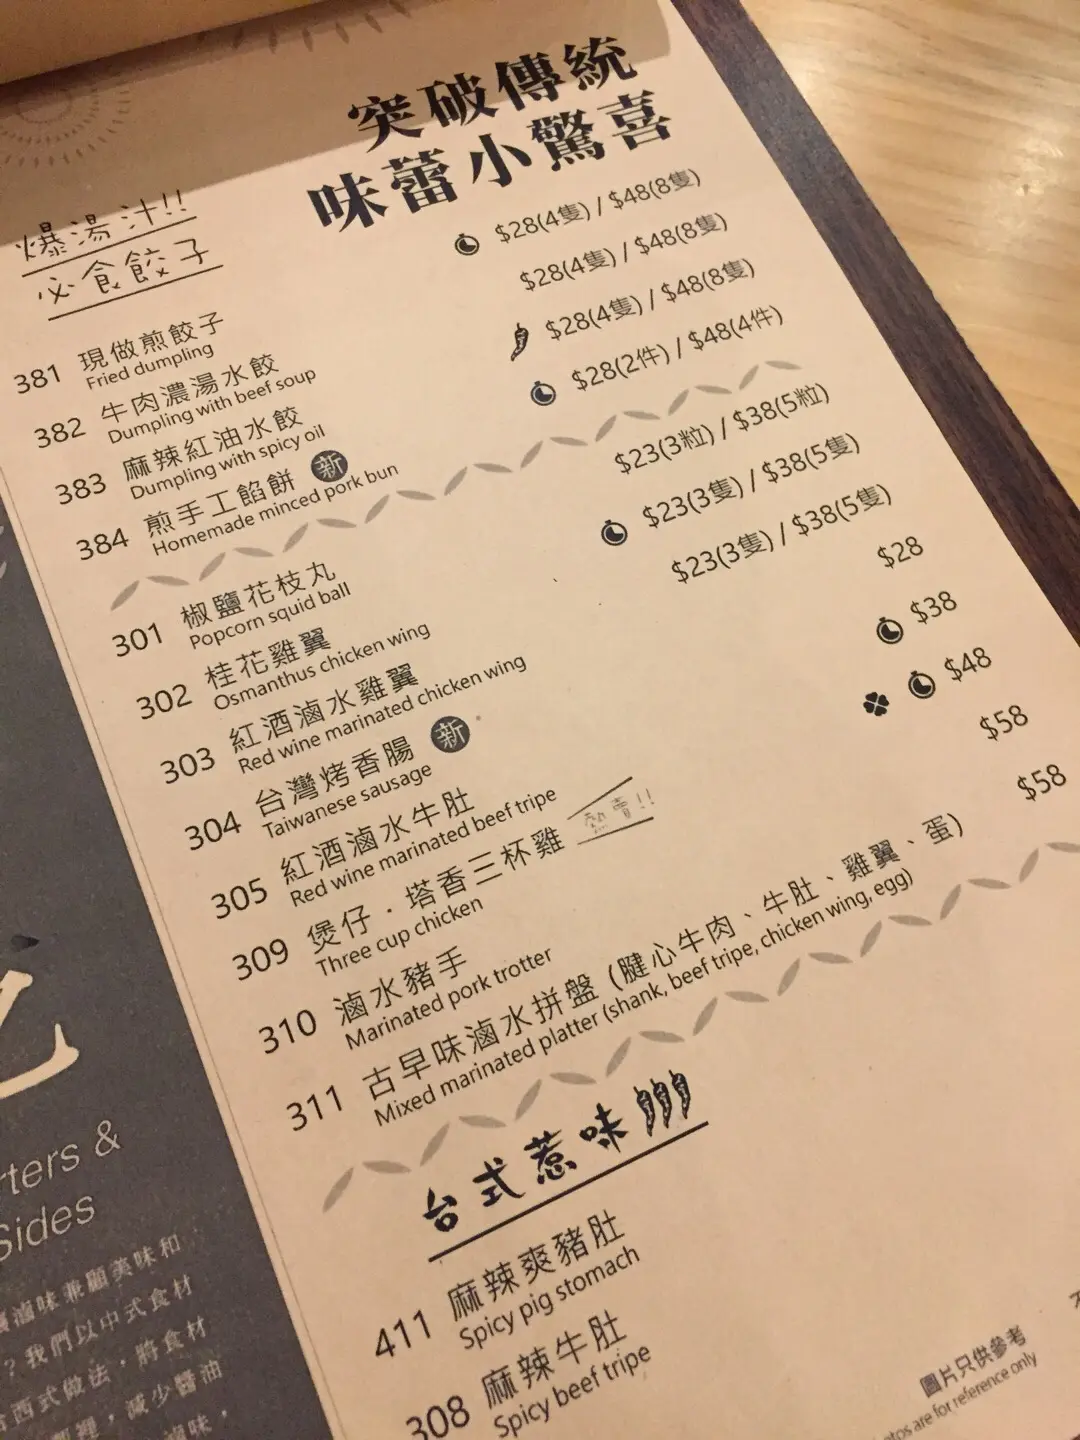 突破傳統
味蕾小驚喜
爆湯汁!!
必食餃子
381 現做煎餃子 $28(4隻) / $48(8隻)
Fried dumpling
382 牛肉濃湯水餃 $28(4隻) / $48(8隻)
Dumpling with beef soup
383 麻辣紅油水餃 $28(4隻) / $48(8隻)
Dumpling with spicy oil
384 煎手工餡餅 新 $28(2件) / $48(4件)
Homemade minced pork bun
301 椒鹽花枝丸 $23(3粒) / $38(5粒)
Popcorn squid ball
302 桂花雞翼 $23(3隻) / $38(5隻)
Osmanthus chicken wing
303 紅酒滷水雞翼 $23(3隻) / $38(5隻)
Red wine marinated chicken wing
304 台灣烤香腸 新 $28
Taiwanese sausage
305 紅酒滷水牛肚 $38
Red wine marinated beef tripe
309 煲仔．塔香三杯雞 熱賣!! $48
Three cup chicken
310 滷水豬手 $58
Marinated pork trotter
311 古早味滷水拼盤 (腱心牛肉、牛肚、雞翼、蛋) $58
Mixed marinated platter (shank, beef tripe, chicken wing, egg)
台式惹味
411 麻辣爽豬肚
Spicy pig stomach
308 麻辣牛肚
Spicy beef tripe
圖片只供參考
are for reference only
&
Sides
滷味兼顧美味和
？我們以中式食材
西式做法，將食材
裡，減少醬油
滷味，